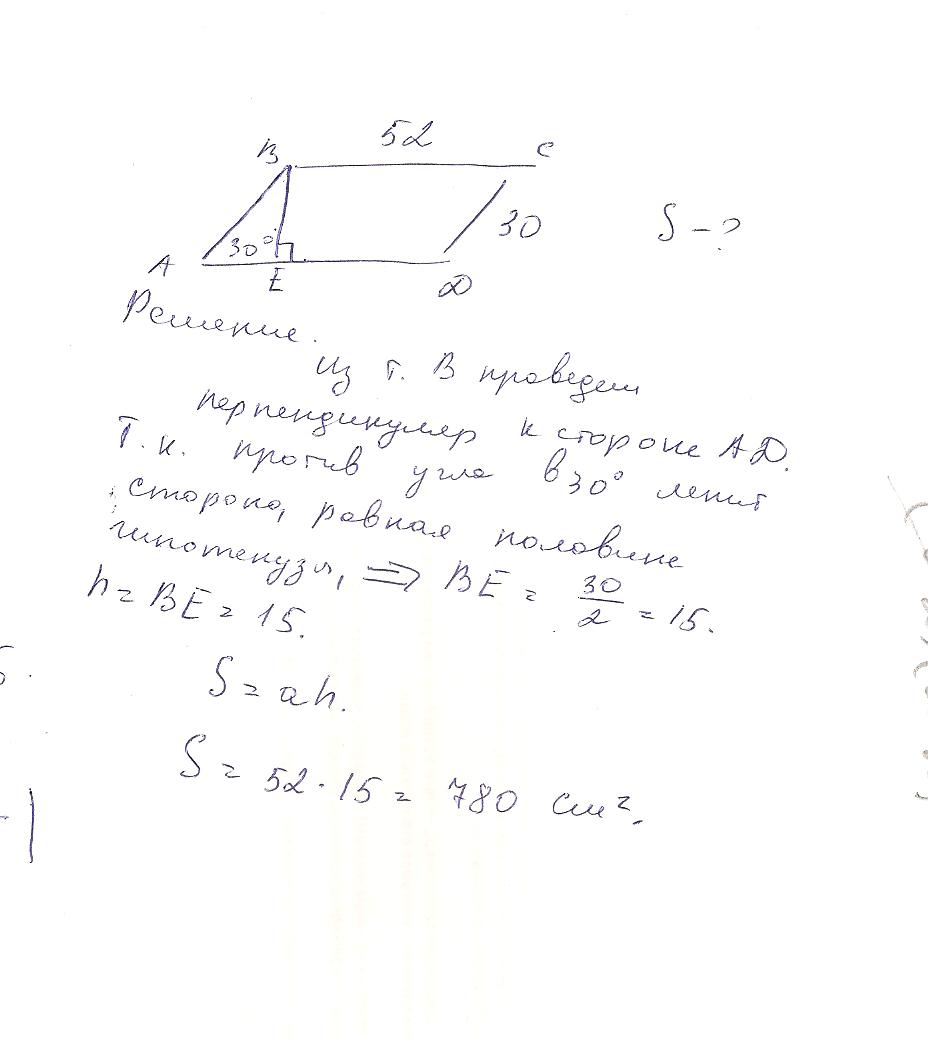 52
B C
30° 30 S - ?
A E D
Решение.
Из т. B проведем
перпендикуляр к стороне AD.
Т.к. против угла в 30° лежит
сторона, равная половине
гипотенузы, ⇒ BE = 30/2 = 15.
h = BE = 15.
S = ah.
S = 52 · 15 = 780 см².